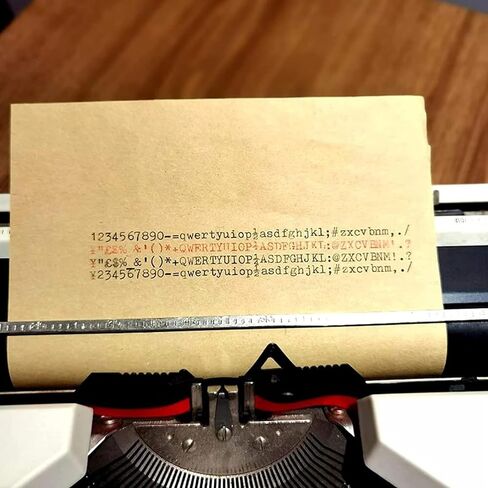 1234567890-=qwertyuiop½asdfghjkl;#zxcvbnm,./
¥"£$%_&'()*+QWERTYUIOP¼ASDFGHJKL:@ZXCVBNM!.?
¥"£$%_&'()*+QWERTYUIOP¾ASDFGHJKL:@ZXCVBNM!.?
¥234567890-=qwertyuiop½asdfghjkl;#zxcvbnm,./